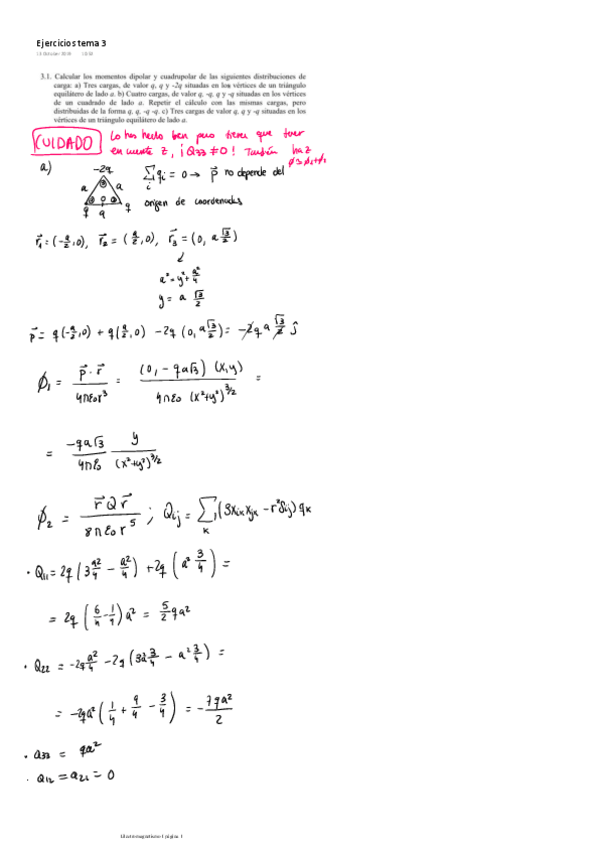 Ejercicios tema 3
3.1. Calcular los momentos dipolar y cuadrupolar de las siguientes distribuciones de
carga: a) Tres cargas, de valor q, q y -2q situadas en los vértices de un triángulo
equilátero de lado a. b) Cuatro cargas, de valor q, -q, q y -q situadas en los vértices
de un cuadrado de lado a. Repetir el cálculo con las mismas cargas, pero
distribuidas de la forma q, q, -q -q. c) Tres cargas de valor q, q y -q situadas en los
vértices de un triángulo equilátero de lado a.
CUIDADO Lo has hecho bien pero tienes que tener
en cuenta z, ¡Q33 ≠ 0! También haz
a) -2q a a q a q ∑i qi = 0 → p⃗ no depende del
origen de coordenadas
r⃗1 = (-a/2, 0), r⃗2 = (a/2, 0), r⃗3 = (0, a √3/2)
a² = y² + a²/4
y = a √3/2
p⃗ = q(-a/2, 0) + q(a/2, 0) - 2q(0, a√3/2) = -2qa √3/2 ĵ
ϕ1 = p⃗ · r⃗ / 4πε0r³ = (0, -qa√3)(x,y) / 4πε0 (x²+y²)^3/2 =
= -qa√3 / 4πε0 y / (x²+y²)^3/2
ϕ2 = r⃗ Q r⃗ / 8πε0 r⁵ ; Qij = ∑k (3xik xjk - r²δij) qk
· Q11 = 2q (3 a²/4 - a²/4) + 2q (a² 3/4) =
= 2q (6/4 - 1/4) a² = 5/2 qa²
· Q22 = -2q a²/4 - 2q (3a² 3/4 - a² 3/4) =
= -2qa² (1/4 + 9/4 - 3/4) = - 7qa²/2
· Q33 = qa²
· Q12 = Q21 = 0
Electromagnetismo I página 1